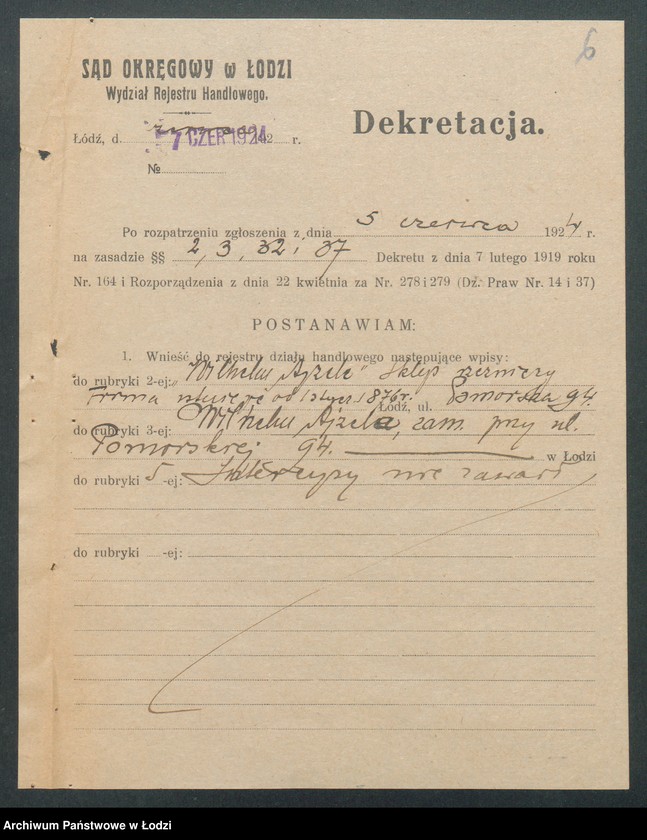 6
SĄD OKRĘGOWY w ŁODZI
Wydział Rejestru Handlowego.
Dekretacja.
Łódź, d. 7 CZER 1924 192 r.
№
Po rozpatrzeniu zgłoszenia z dnia 5 czerwca 1924 r.
na zasadzie §§ 2, 3, 32 i 37 Dekretu z dnia 7 lutego 1919 roku
Nr. 164 i Rozporządzenia z dnia 22 kwietnia za Nr. 278 i 279 (Dz. Praw Nr. 14 i 37)
POSTANAWIAM:
1. Wnieść do rejestru działu handlowego następujące wpisy:
do rubryki 2-ej: „Wilhelm Ajzele" sklep rzeźniczy
Firma istnieje od 1876 r. Łódź, ul. Pomorska 94.
do rubryki 3-ej: Wilhelm Ajzele, zam. przy ul.
Pomorskiej 94. w Łodzi
do rubryki 5-ej: Intercyzy nie zawarł
do rubryki -ej:
Archiwum Państwowe w Łodzi